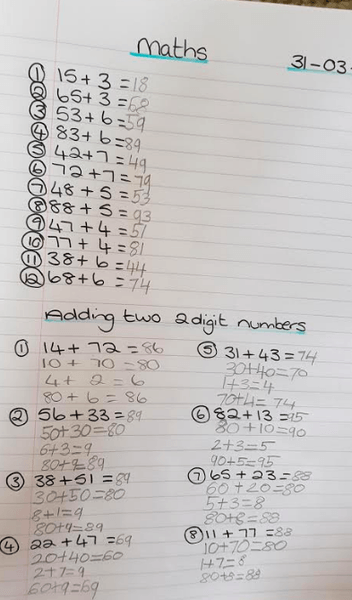 Maths
31-03-
① 15 + 3 = 18
② 65 + 3 = 68
③ 53 + 6 = 59
④ 83 + 6 = 89
⑤ 42 + 7 = 49
⑥ 72 + 7 = 79
⑦ 48 + 5 = 53
⑧ 88 + 5 = 93
⑨ 47 + 4 = 51
⑩ 77 + 4 = 81
⑪ 38 + 6 = 44
⑫ 68 + 6 = 74
Adding two 2 digit numbers
① 14 + 72 = 86
10 + 70 = 80
4 + 2 = 6
80 + 6 = 86
② 56 + 33 = 89
50 + 30 = 80
6 + 3 = 9
80 + 9 = 89
③ 38 + 51 = 89
30 + 50 = 80
8 + 1 = 9
80 + 9 = 89
④ 22 + 47 = 69
20 + 40 = 60
2 + 7 = 9
60 + 9 = 69
⑤ 31 + 43 = 74
30 + 40 = 70
1 + 3 = 4
70 + 4 = 74
⑥ 82 + 13 = 95
80 + 10 = 90
2 + 3 = 5
90 + 5 = 95
⑦ 65 + 23 = 88
60 + 20 = 80
5 + 3 = 8
80 + 8 = 88
⑧ 11 + 77 = 88
10 + 70 = 80
1 + 7 = 8
80 + 8 = 88